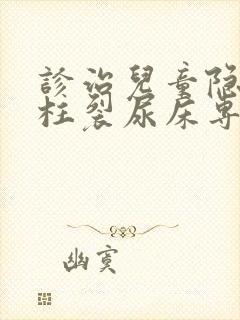 診治兒童隐
柱裂尿床専
幽寞